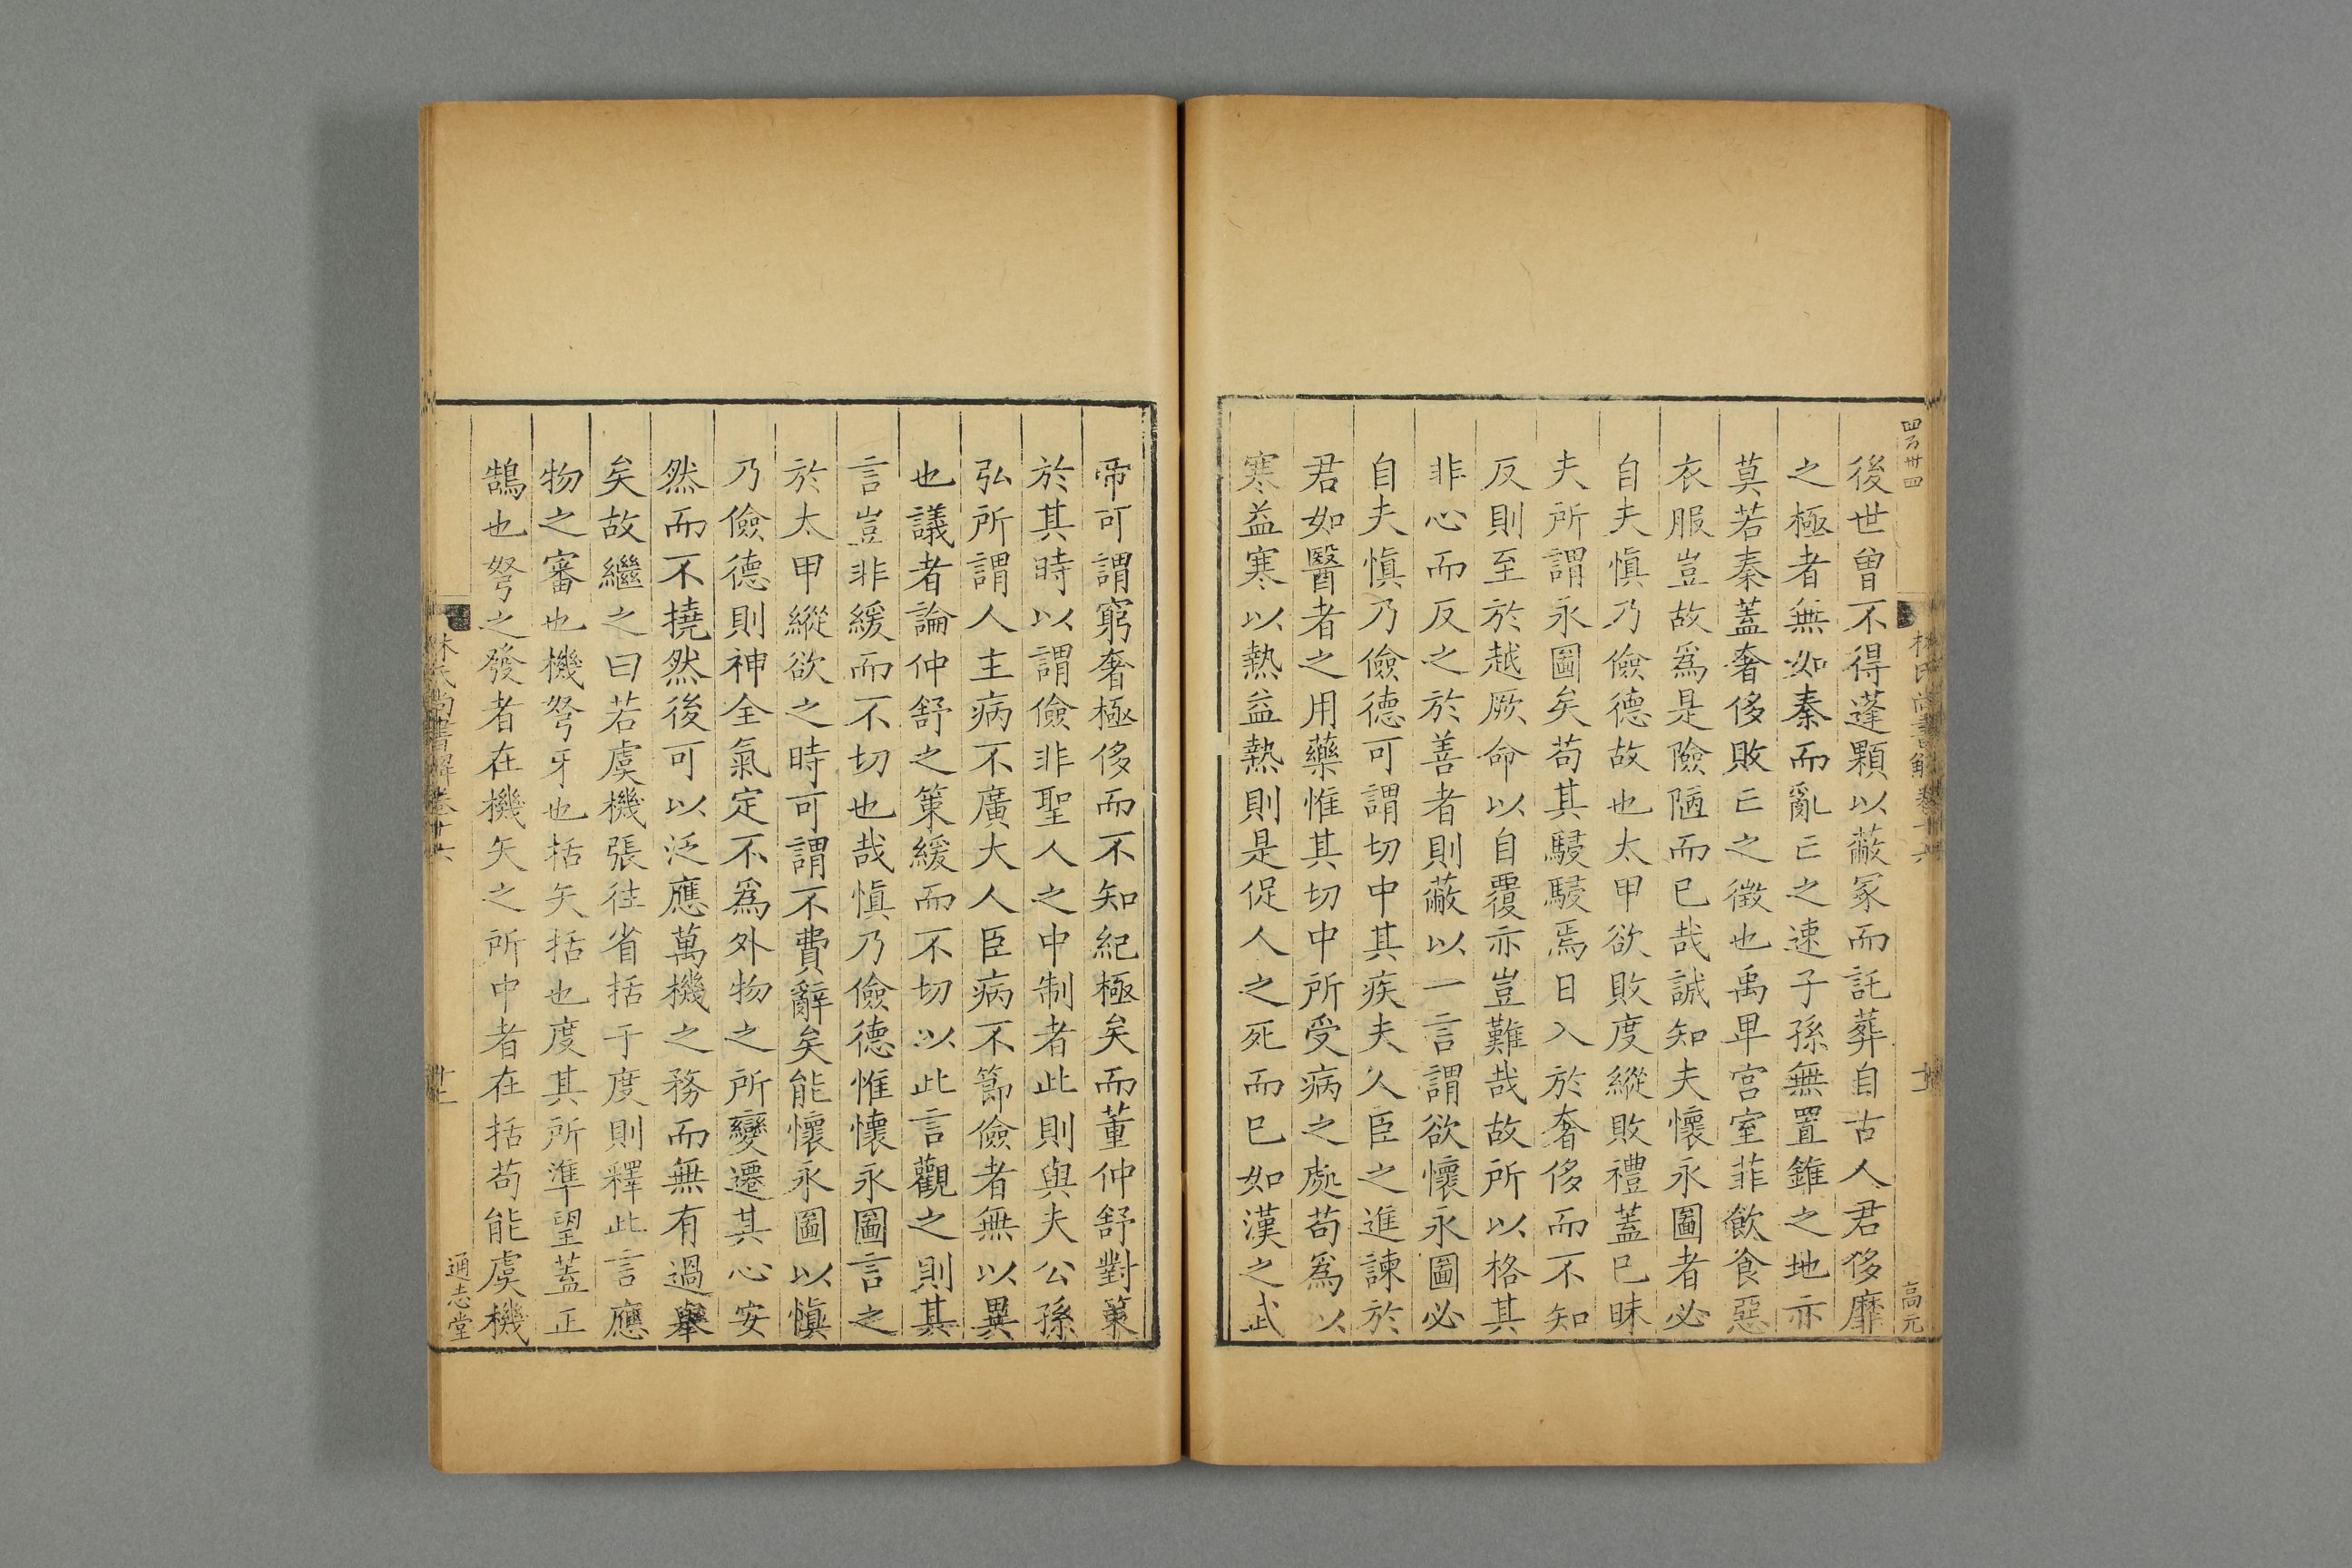 四百卅四
後世曾不得蓬顆以蔽冢而託葬自古人君侈靡
之極者無如秦而亂亡之速子孫無置錐之地亦
莫若秦蓋奢侈敗亡之徴也禹卑宫室菲飲食惡
衣服豈故爲是險陋而已哉誠知夫懷永圖者必
自夫愼乃儉德故也太甲欲敗度縱敗禮蓋已昧
夫所謂永圖矣苟其駸駸焉日入於奢侈而不知
反則至於越厥命以自覆亦豈難哉故所以格其
非心而反之於善者則蔽以一言謂欲懷永圖必
自夫愼乃儉德可謂切中其疾夫人臣之進諫於
君如醫者之用藥惟其切中所受病之處苟爲以
寒益寒以熱益熱則是促人之死而已如漢之武
林氏尚書解卷十六
高元
帝可謂窮奢極侈而不知紀極矣而董仲舒對策
於其時以謂儉非聖人之中制者此則與夫公孫
弘所謂人主病不廣大人臣病不節儉者無以異
也議者論仲舒之策緩而不切以此言觀之則其
言豈非緩而不切也哉愼乃儉德惟懷永圖言之
於太甲縱欲之時可謂不費辭矣能懷永圖以愼
乃儉德則神全氣定不爲外物之所變遷其心安
然而不撓然後可以泛應萬機之務而無有過舉
矣故繼之曰若虞機張往省括于度則釋此言應
物之審也機弩牙也括矢括也度其所準望蓋正
鵠也弩之發者在機矢之所中者在括苟能虞機
林氏尚書解卷十六
通志堂